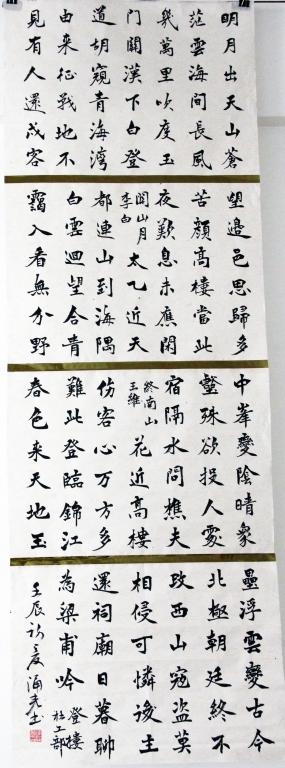 明月出天山蒼
茫雲海間長風
幾萬里吹度玉
門關漢下白登
道胡窺青海灣
由來征戰地不
見有人還戍客
望邊色思歸多
苦顏高樓當此
夜歎息未應閑
關山月
李白
太乙近天
都連山到海隅
白雲迴望合青
靄入看無分野
中峯變陰晴衆
壑殊欲投人處
宿隔水問樵夫
終南山
王維
花近高樓
傷客心万方多
難此登臨錦江
春色來天地玉
壘浮雲變古今
北極朝廷終不
改西山寇盜莫
相侵可憐後主
還祠廟日暮聊
為梁甫吟
登樓
杜工部
壬辰秋